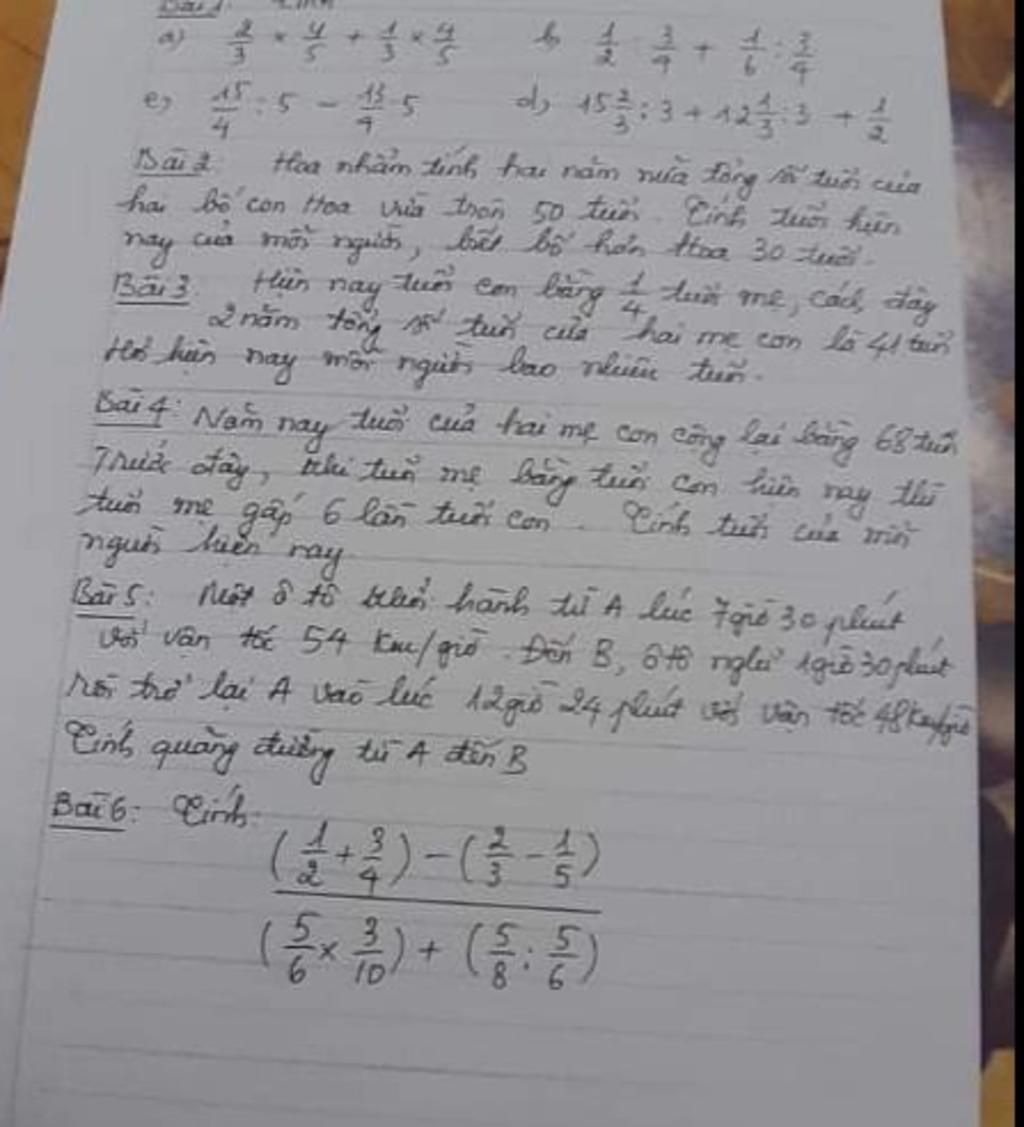 Bài 1: Tính
a) 2/3 × 4/5 + 1/3 × 4/5 b, 1/2 : 3/4 + 1/6 : 3/4
c, 15/4 : 5 - 13/4 : 5 d, 15 2/3 : 3 + 12 1/3 : 3 + 1/2
Bài 2: Hoa nhẩm tính hai năm nữa tổng số tuổi của
hai bố con Hoa vừa tròn 50 tuổi. Tính tuổi hiện
nay của mỗi người, biết bố hơn Hoa 30 tuổi.
Bài 3: Hiện nay tuổi con bằng 1/4 tuổi mẹ, cách đây
2 năm tổng số tuổi của hai mẹ con là 41 tuổi
Hỏi hiện nay mỗi người bao nhiêu tuổi.
Bài 4: Năm nay tuổi của hai mẹ con cộng lại bằng 68 tuổi
Trước đây, khi tuổi mẹ bằng tuổi con hiện nay thì
tuổi mẹ gấp 6 lần tuổi con. Tính tuổi của mỗi
người hiện nay
Bài 5: Một ô tô khởi hành từ A lúc 7 giờ 30 phút
với vận tốc 54 km/giờ. Đến B, ô tô nghỉ 1 giờ 30 phút
rồi trở lại A vào lúc 12 giờ 24 phút với vận tốc 48 km/giờ
Tính quãng đường từ A đến B
Bài 6: Tính:
(1/2 + 3/4) - (2/3 - 1/5)
(5/6 × 3/10) + (5/8 : 5/6)